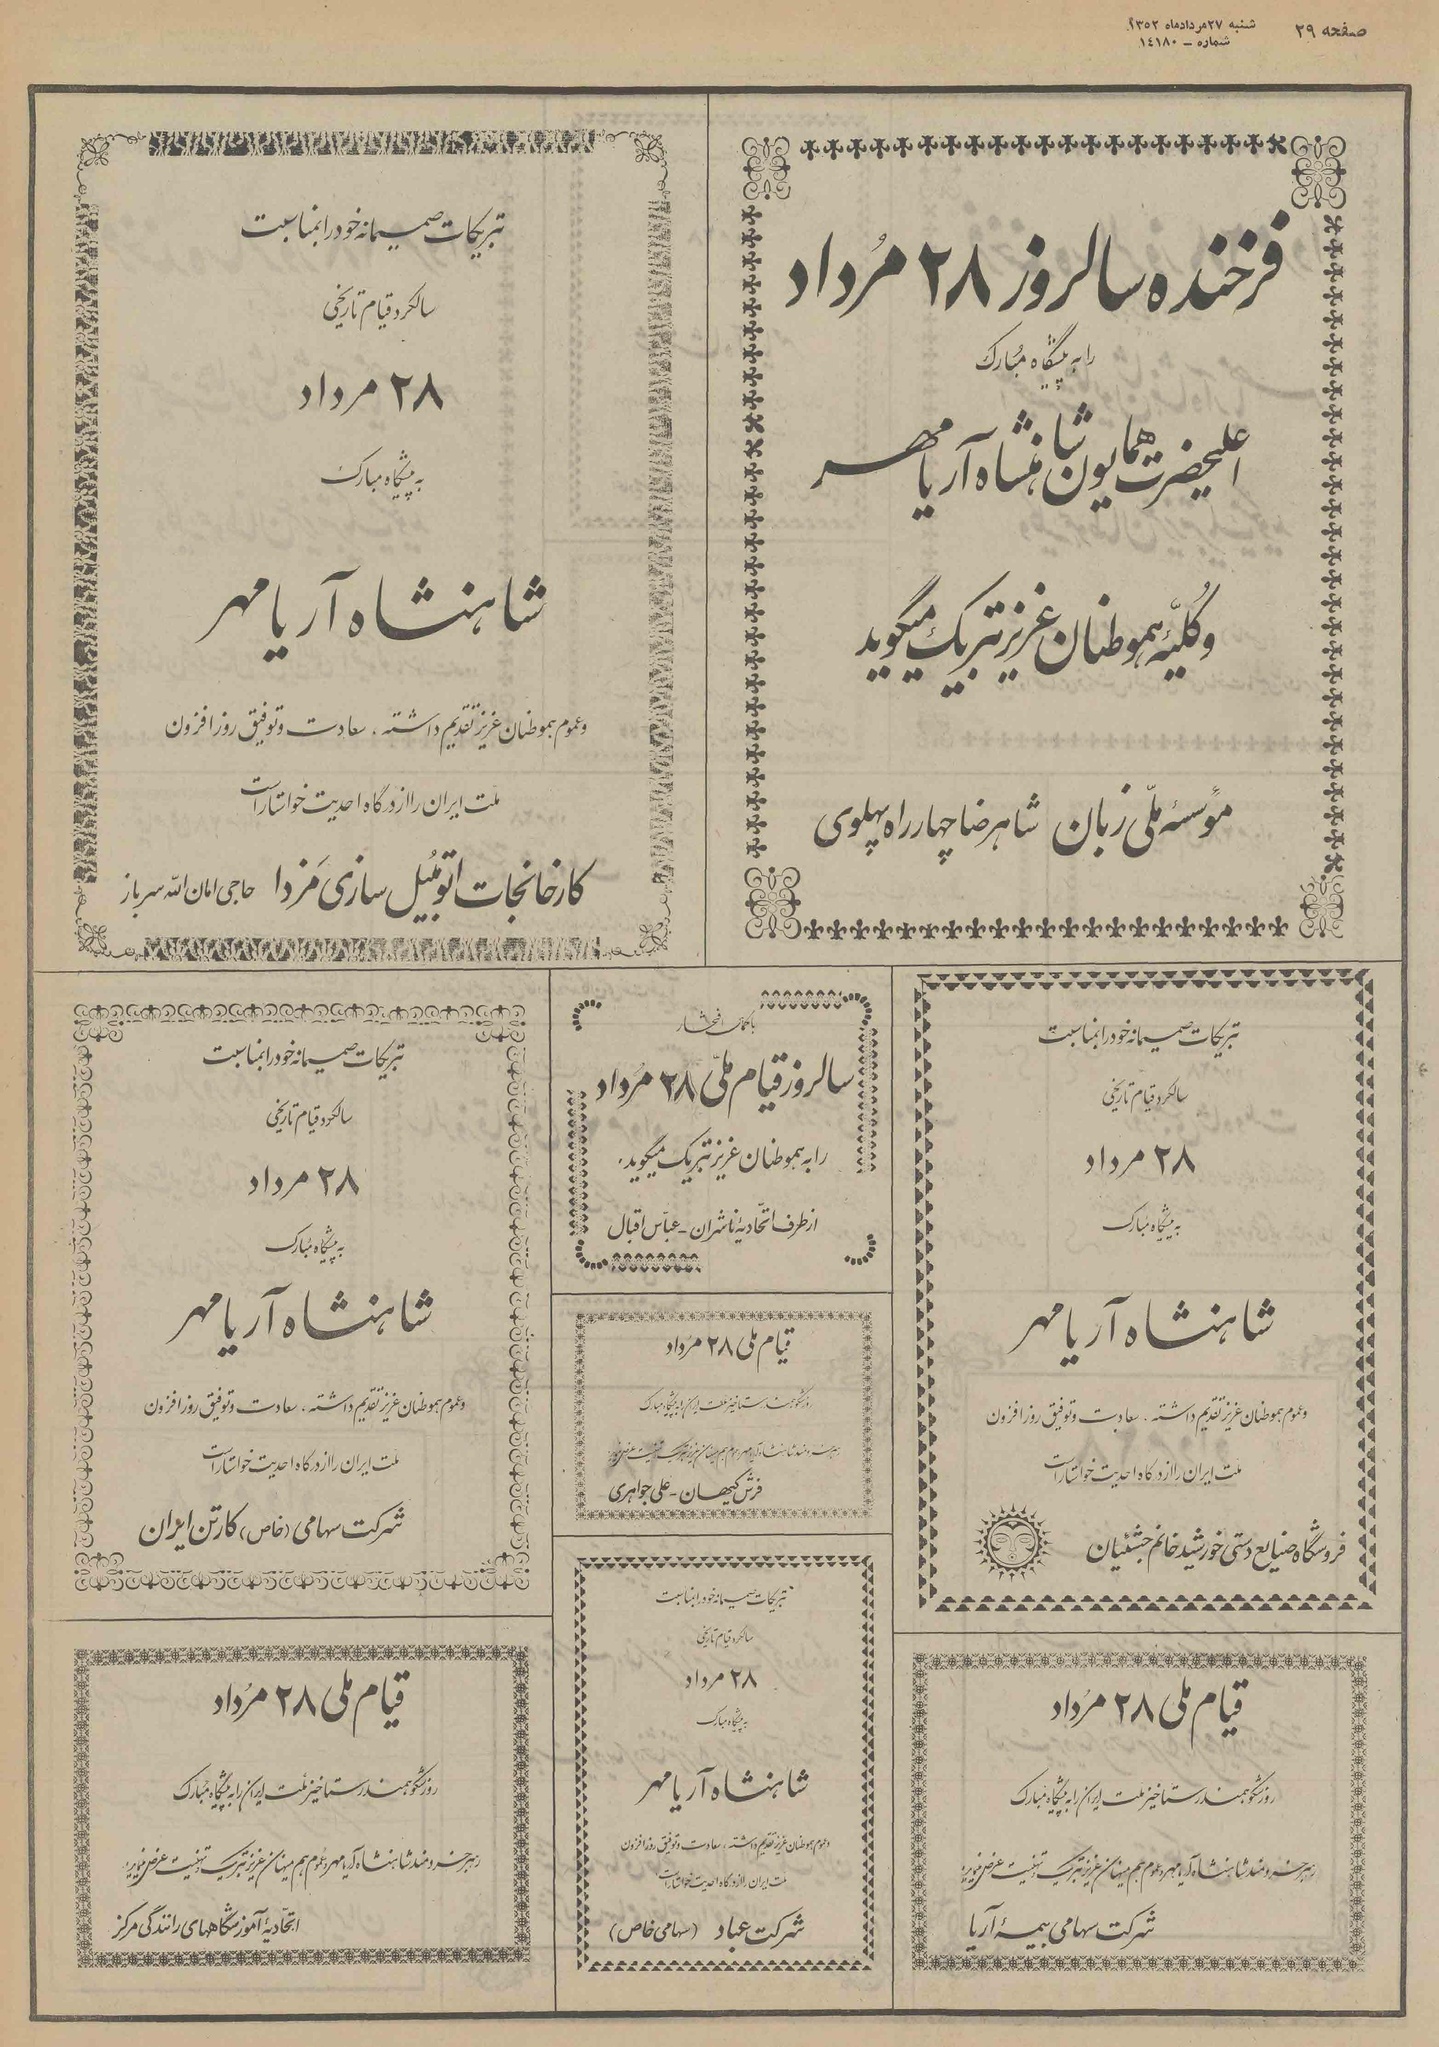 صفحه ۲۹
شنبه ۲۷ مردادماه ۱۳۵۲
شماره – ۱٤۱۸۰
فرخنده سالروز ۲۸ مُرداد
را به پیشگاه مُبارک
اعلیحضرت همایون شاهنشاه آریامهر
و کُلیّهٔ هموطنان عزیز تبریک میگوید
مؤسسهٔ ملّی زبان شاهرضا چهارراه پهلوی
تبریکات صمیمانه خود را بمناسبت
سالگرد قیام تاریخی
۲۸ مرداد
به پیشگاه مبارک
شاهنشاه آریامهر
و عموم هموطنان عزیز تقدیم داشته، سعادت و توفیق روزافزون
ملّت ایران را از درگاه احدیت خواستار است
کارخانجات اتومُبیل سازی مَزدا حاجی امان الله سرباز
تبریکات صمیمانه خود را بمناسبت
سالگرد قیام تاریخی
۲۸ مرداد
به پیشگاه مبارک
شاهنشاه آریامهر
و عموم هموطنان عزیز تقدیم داشته، سعادت و توفیق روزافزون
ملّت ایران را از درگاه احدیت خواستار است
فروشگاه صنایع دستی خورشید خانم جشنیان
باکمال افتخار
سالروز قیام ملّی ۲۸ مُرداد
را به هموطنان عزیز تبریک میگوید.
از طرف اتّحادیهٔ ناشران - عبّاس اقبال
تبریکات صمیمانه خود را بمناسبت
سالگرد قیام تاریخی
۲۸ مرداد
به پیشگاه مُبارک
شاهنشاه آریامهر
و عموم هموطنان عزیز تقدیم داشته، سعادت و توفیق روزافزون
ملّت ایران را از درگاه احدیت خواستار است
شرکت سهامی (خاص) کارتن ایران
قیام ملی ۲۸ مرداد
روز شکوهمند رستاخیز ملت ایران را به پیشگاه مبارک
رهبر خردمند شاهنشاه آریامهر و عموم هم میهنان عزیز تبریک و تهنیت عرض
فرش کیهان - علی جواهری
تبریکات صمیمانه خود را بمناسبت
سالگرد قیام تاریخی
۲۸ مرداد
به پیشگاه مبارک
شاهنشاه آریامهر
و عموم هموطنان عزیز تقدیم داشته، سعادت و توفیق روزافزون
ملت ایران را از درگاه احدیت خواستار است
شرکت عباد (سهامی خاص)
قیام ملی ۲۸ مرُداد
روز شکوهمند رستاخیز ملت ایران را به پیشگاه مبارک
رهبر خردمند شاهنشاه آریامهر و عموم هم میهنان عزیز تبریک و تهنیت عرض
شرکت سهامی بیمهٔ آریا
قیام ملی ۲۸ مرُداد
روز شکوهمند رستاخیز ملت ایران را به پیشگاه مبارک
رهبر خردمند شاهنشاه آریامهر و عموم هم میهنان عزیز تبریک و تهنیت عرض
اتّحادیهٔ آموزشگاههای رانندگی مرکز